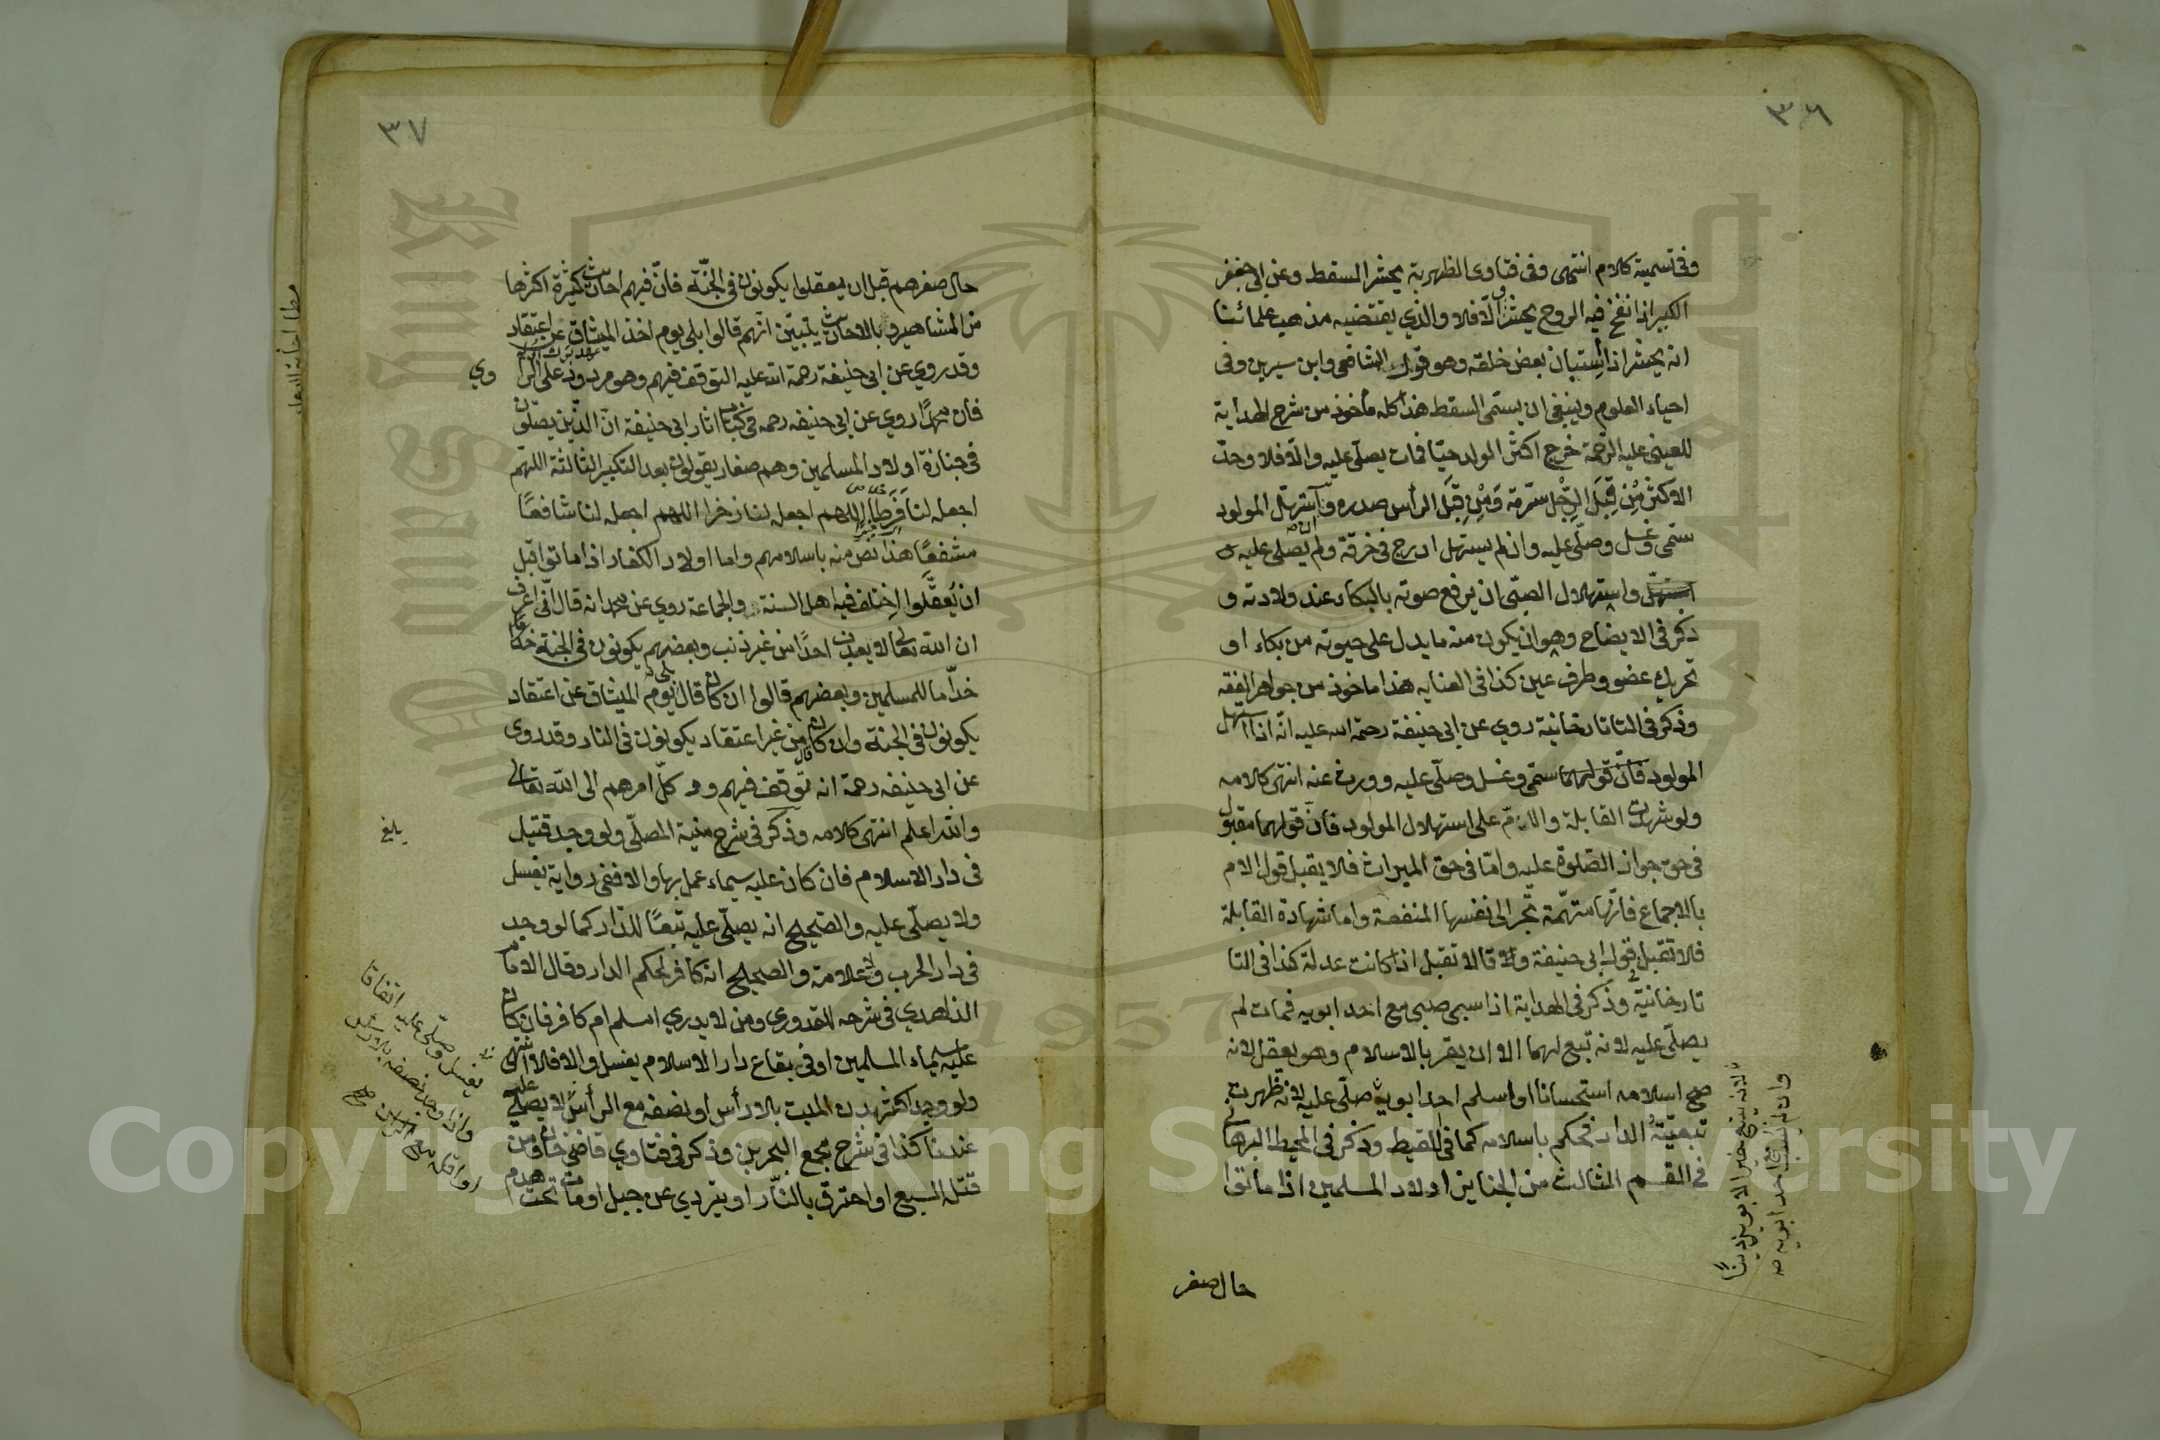 ٣٦
وفى تسمية كلام انتهى وفى فتاوى الظهرية يحشر السقط وعن ابى جعفر
الكبير اذا نفخ فيه الروح يحشر والّا فلا والذي يقتضيه مذهب علمائنا
انه يحشر اذا استبان بعض خلقه وهو قول الشافعى وابن سيرين وفى
احياء العلوم وينبغى ان يسمّى السقط هذا كله مأخوذ من شرح الهداية
للعينى عليه الرحمة خرج اكثر الولد حيّا فمات يصلّى عليه والّا فلا وحدّ
الاكثر مِنْ قِبَلِ الرِّجْل سرّته وَمِنْ قِبَل الرأس صدره وان استهلّ المولود
سمّى وغسل وصلّى عليه وان لم يستهل ادرج فى خرقة ولم يصلى عليه
واستهلال الصبّى ان يرفع صوته بالبكاء عند ولادته و
ذكر فى الايضاح وهو ان يكون منه ما يدل على حيوته من بكاء او
تحريك عضو وطرف عين كذا فى العنايه هذا ماخوذ من جواهر الفقه
وذكر فى التاتارخانية روي عن ابى حنيفة رحمة الله عليه انّه اذا استهل
المولود سمّى وغسل وصلّى عليه وورث عنه انتهى كلامه
ولو شهدت القابلة والامّ على استهلال المولود فانّ قولهما مقبول
فى حق جواز الصّلوة عليه وامّا فى حق الميراث فلا يقبل قول الام
بالاجماع فانّها متهمّة تجر الى نفسها المنفعة واما شهادة القابلة
فلا تقبل قول ابى حنيفة وقالا تقبل اذا كانت عدلة كذا فى التا
تارخانية وذكر فى الهداية اذا سبى صبى مع احد ابويه فمات لم
يصلّى عليه لانه تبع لهما الا ان يقر بالاسلام وهو يعقل لانه
صح اسلامه استحسانا او اسلم احد ابويه صلّى عليه لانه ظهرت
تبعيّة الدار فحكم باسلامه كما فى اللقيط وذكر فى المحيط البرهانى
فى القسم الثالث من الجنايز اولاد المسلمين اذا ماتوا
لانه يتبع خير الابوين دينًا
وان لم يسب مع احد ابويه صح
حال صغر
٣٧
حال صغرهم قبل ان يعقلوا يكونون فى الجنّة فانّ فيهم احاديث كثيرة اكثرها
من المشاهير وبالاحاديث يتبيّن انهم قالوا بلى يوم اخذ الميثاق عن اعتقاد
وقد روي عن ابى حنيفة رحمة الله عليه التوقف فيهم وهو مردود على الراوي
فان محمدًا روي عن ابى حنيفه رحمه فى كتاب اثار ابى حنيفة انّ الّذين يصلّون
فى جنازة اولاد المسلمين وهم صغار يقولون بعد التكبير الثالثة اللهمّ
اجعله لنا فَرَطًا اللهم اجعله لنا ذخرا اللهم اجعله لنا شافعًا
مشفعًا هذا نص منه باسلامهم واما اولاد الكفار اذا ماتوا قبل
ان يُعقَّلوا اختلف فيه اهل السنة والجماعة روي عن محمد انه قال انّى اعرف
ان الله تعالى لا يعذب احدًا من غير ذنب وبعضهم يكونون فى الجنة
خدّاما للمسلمين وبعضهم قالوا ان كان قال بلى يوم الميثاق عن اعتقاد
يكونون فى الجنة وان كان قال من غير اعتقاد يكونون فى النار وقد روى
عن ابى حنيفه رحمة انه توقف فيهم ووكل امرهم الى الله تعالى
والله اعلم انتهى كلامه وذكر فى شرح منية المصلّى ولو وجد قتيل
فى دار الاسلام فان كان عليه سيماء عمل بها والا ففى رواية يغسل
ولا يصلّى عليه والصّحيح انه يصلّى عليه تبعًا للدّار كما لو وجد
فى دار الحرب ولا علامة والصحيح انه كافر لحكم الدار وقال الامام
الزاهدي فى شرحه للقدورى ومن لا يدري امسلم ام كافر فان كان
عليه سيماء المسلمين او فى بقاع دار الاسلام يغسل والا فلا انتهى
ولو وجد اكثر بدن الميت بلا رأس او نصفه مع الرأس لا يصلّى عليه
عندنا كذا فى شرح مجمع البحرين وذكر فى فتاوي قاضى خان ومن
قتله السبع او احترق بالنّار او يتردي من جبل او مات تحت هدم
بلغ
يغسل وصلّى عليه اتفاقا